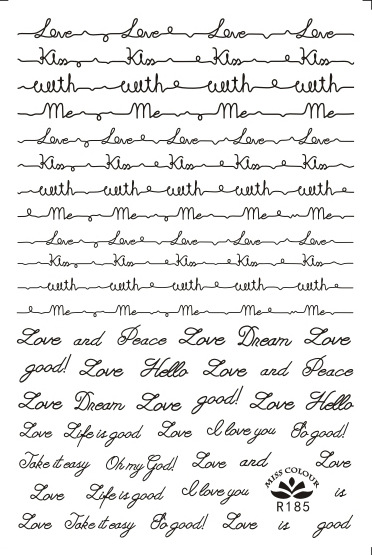 Love Love Love Love
Kiss Kiss Kiss Kiss
with with with with
Me Me Me Me
Love Love Love Love Love
Kiss Kiss Kiss Kiss Kiss
with with with with with
Me Me Me Me Me
Love Love Love Love Love
Kiss Kiss Kiss Kiss Kiss
with with with with with
Me Me Me Me Me
Love and Peace Love Dream Love
good! Love Hello Love and Peace
Love Dream Love good! Love Hello
Love Life is good Love I love you So good!
Take it easy Oh my God! Love and Love
Love Life is good I love you MISS COLOUR is
R185
Love Take it easy So good! Love is good